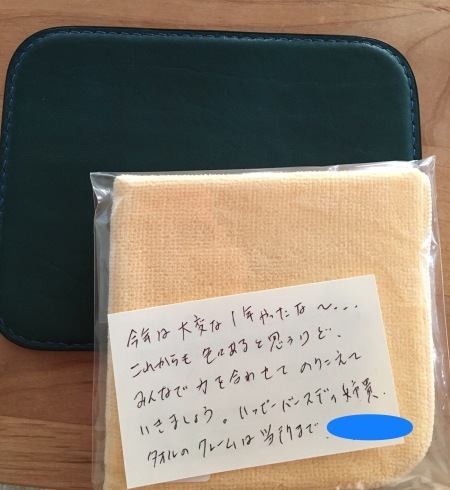 今年は大変な1年やったな〜...
これからも色々あると思うけど、
みんなで力を合わせてのりこえて
いきましょう。ハッピーバースデイ姉貴.
タオルのクレームは当方まで.